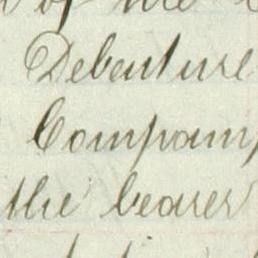 of the
Debenture
Company
the bearer